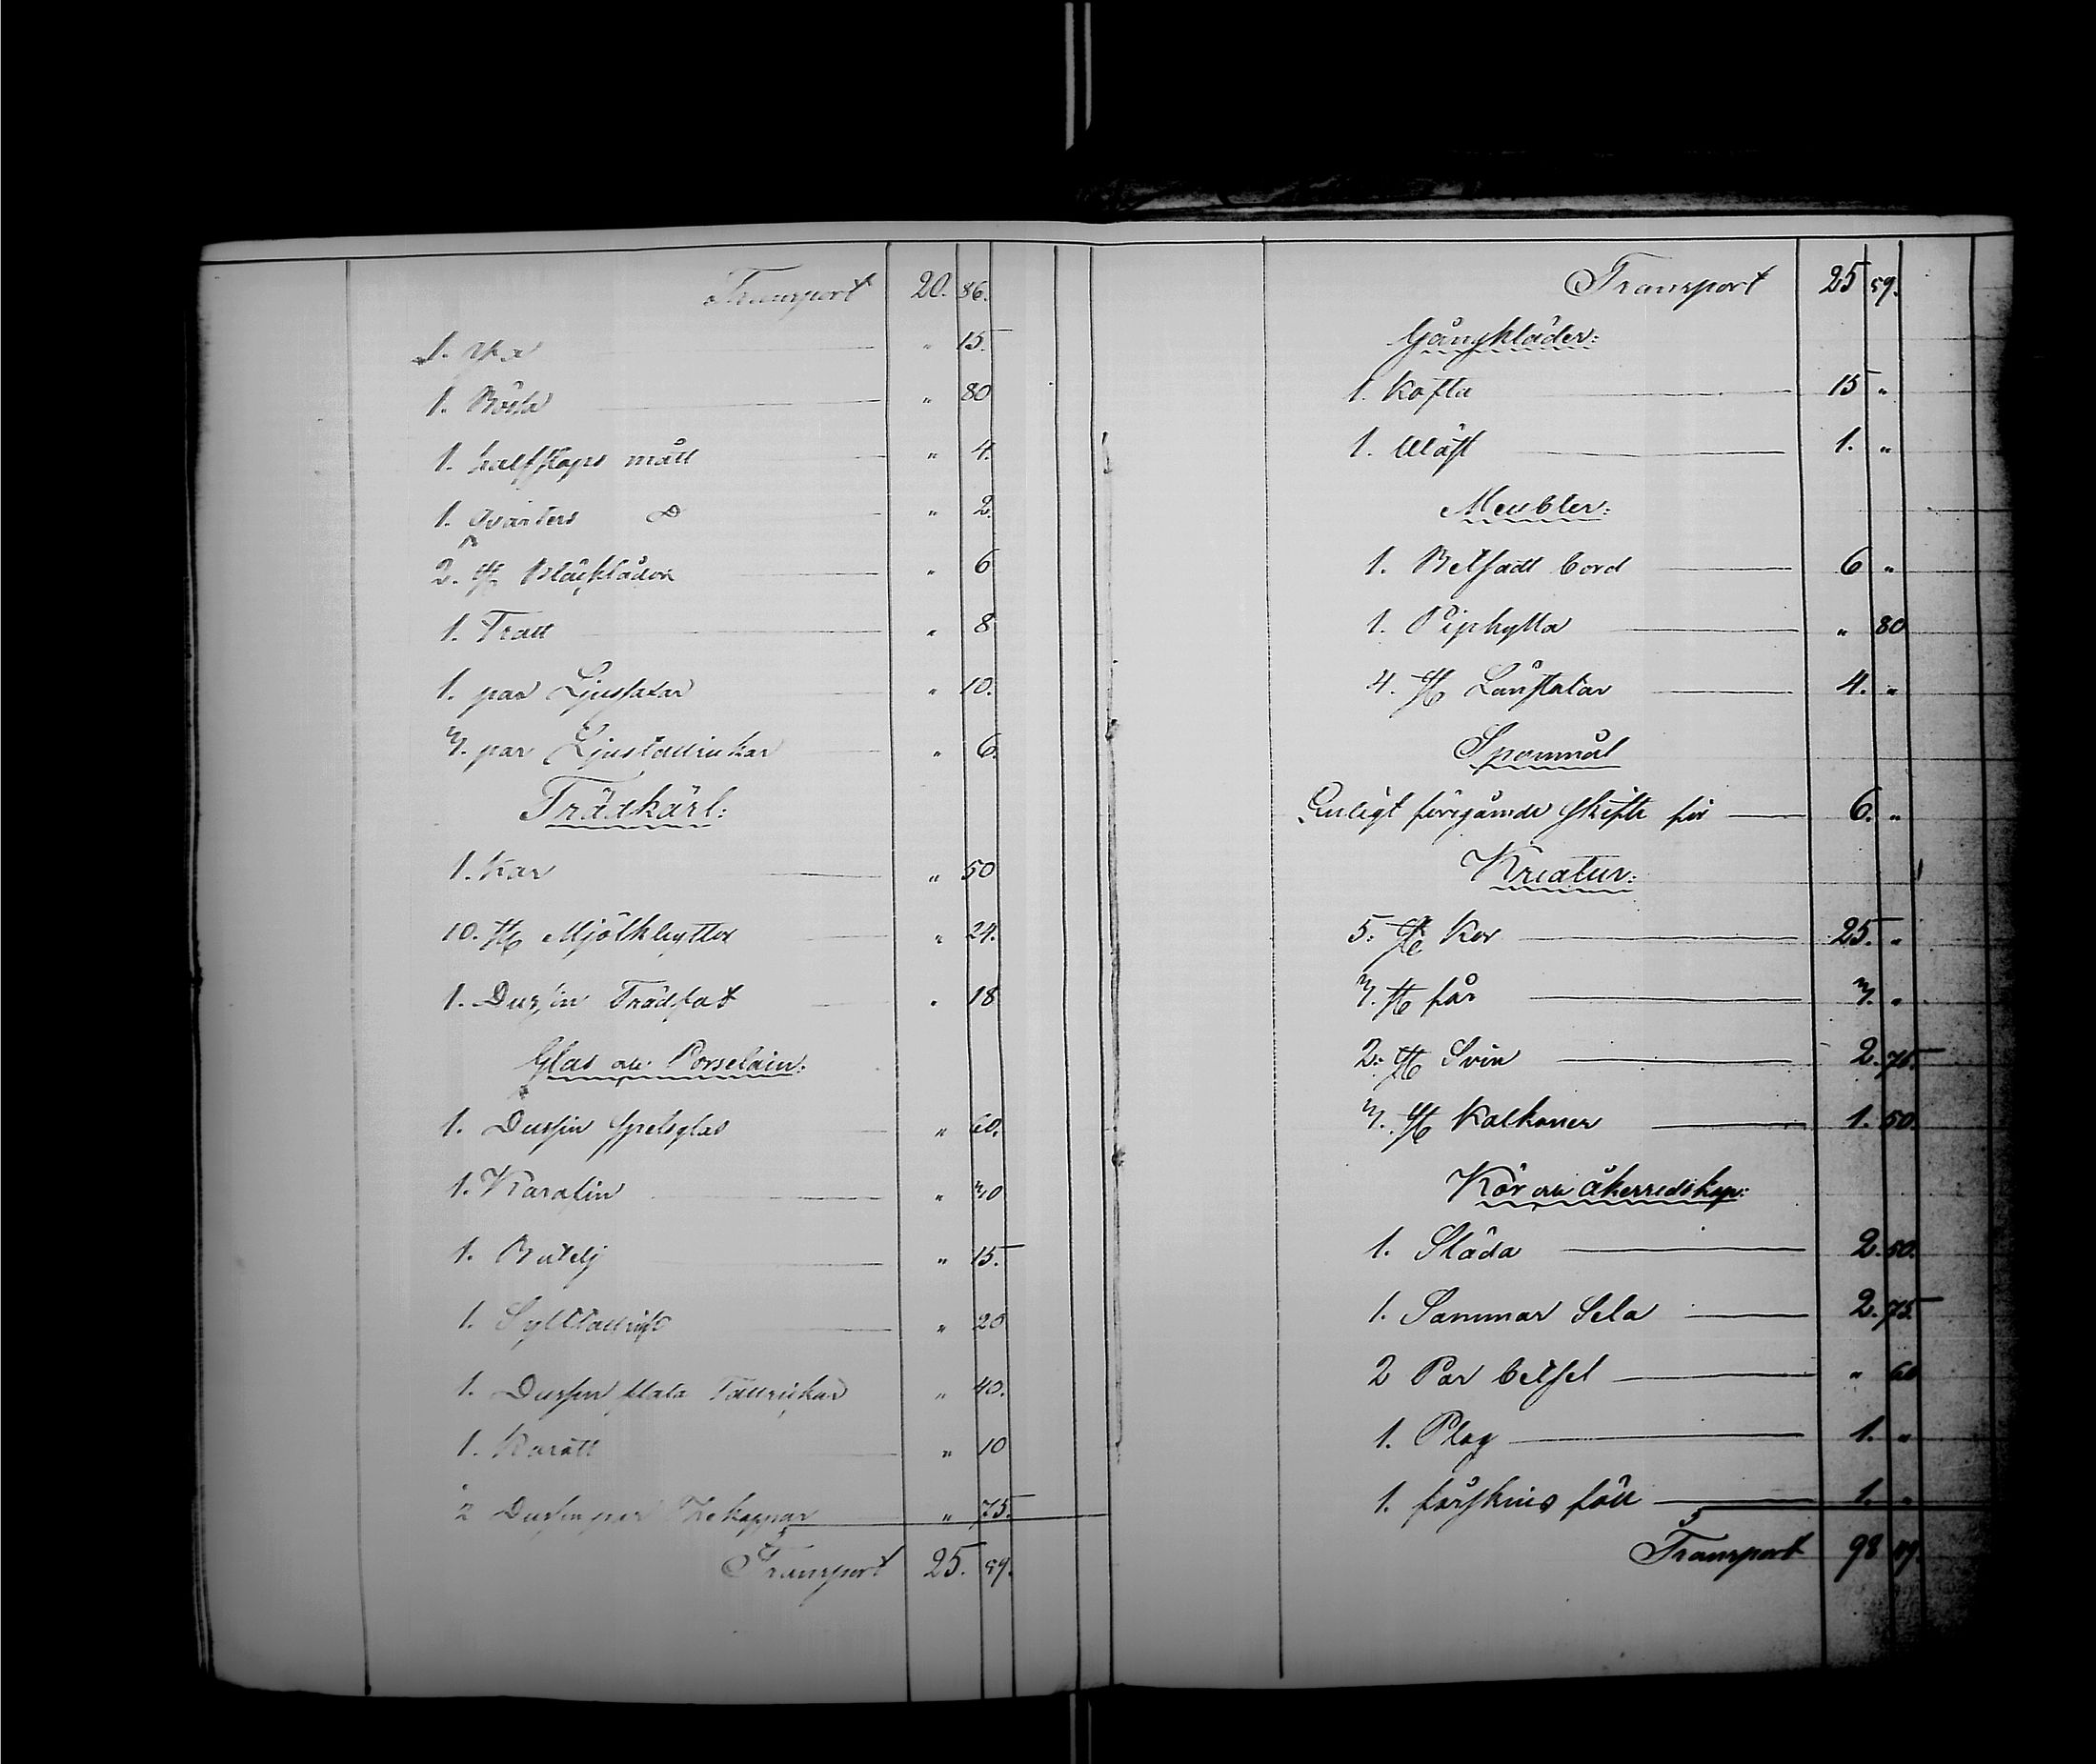 Transport 20. 86.
1. Yxa " 15.
1. Bössa " 80
1. halfstops mått " 4.
1. Qvarters D " 2.
2. st Bläcklådor " 6
1. Tratt " 8
1. par Ljussaxar " 10.
3. par Ljustallrickar " 6.
Trädkärl:
1. Kar " 50
10. st Mjölkbyttor " 24.
1. Dussin Trädfat " 18
Glas och Porselain:
1. Dussin Spetsglas " 60.
1. Karafin " 30
1. Butelj " 15.
1. Sylttallrick " 20
1. Dussin flata Tallrickar " 40.
1. Karott " 10
2 Dussin par Thekoppar " 75.
Transport 25. 59.
Transport 25 59.
Gångkläder:
1. Kofta 15 "
1. Väst 1. "
Meubler:
1. Betsadt bord 6 "
1. Piphylla " 80
4. st Länstolar 4. "
Spannmål
Enligt föregående skifte för 6. "
Kreatur:
5: st Kor 25. "
3. st får 3. "
2: st Svin 2. 75.
3. st Kalkoner 1. 50.
Kör och åkerredskap:
1. Släda 2. 50.
1. Sommar Sela 2. 75.
2 Par betsel " 60
1. Plog 1. "
1. fårskins fäll 1. "
Transport 98 49.